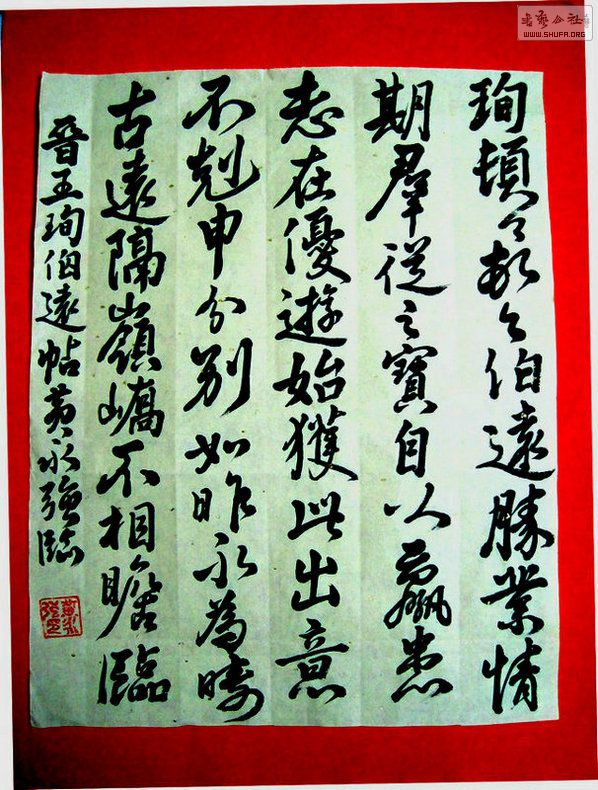 珣頓々首々伯遠勝業情
期羣從之寶自以羸患
志在優遊始獲此出意
不剋申分別如昨永為疇
古遠隔嶺嶠不相瞻臨
晉王珣伯遠帖黃永強臨
書藝公社
WWW.SHUFA.ORG